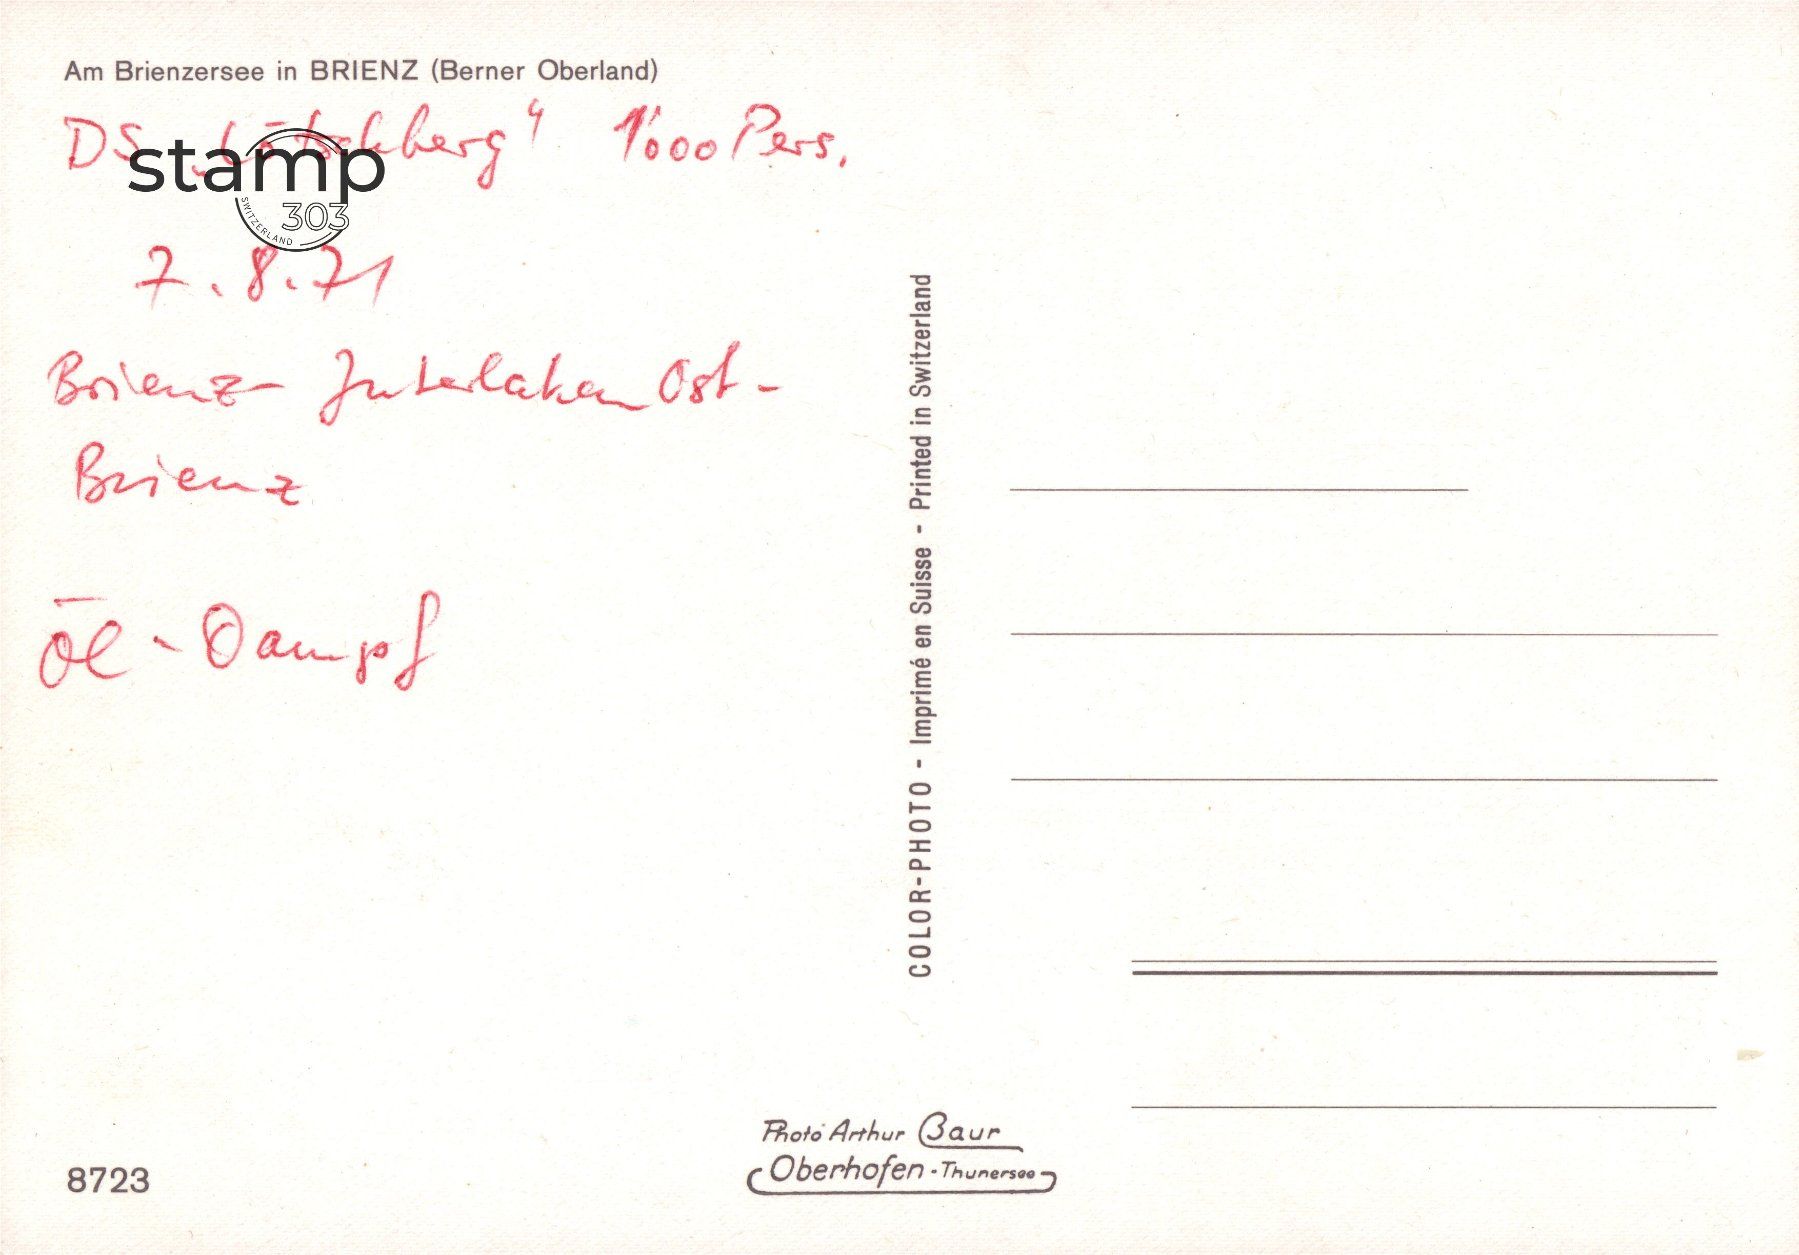 Am Brienzersee in BRIENZ (Berner Oberland)
DS „Lötschberg“ 1'000 Pers.
stamp
303
SWITZERLAND
7.8.71
Brienz - Interlaken Ost -
Brienz
Öl - Dampf
COLOR-PHOTO - Imprimé en Suisse - Printed in Switzerland
Photo Arthur Baur
Oberhofen - Thunersee
8723